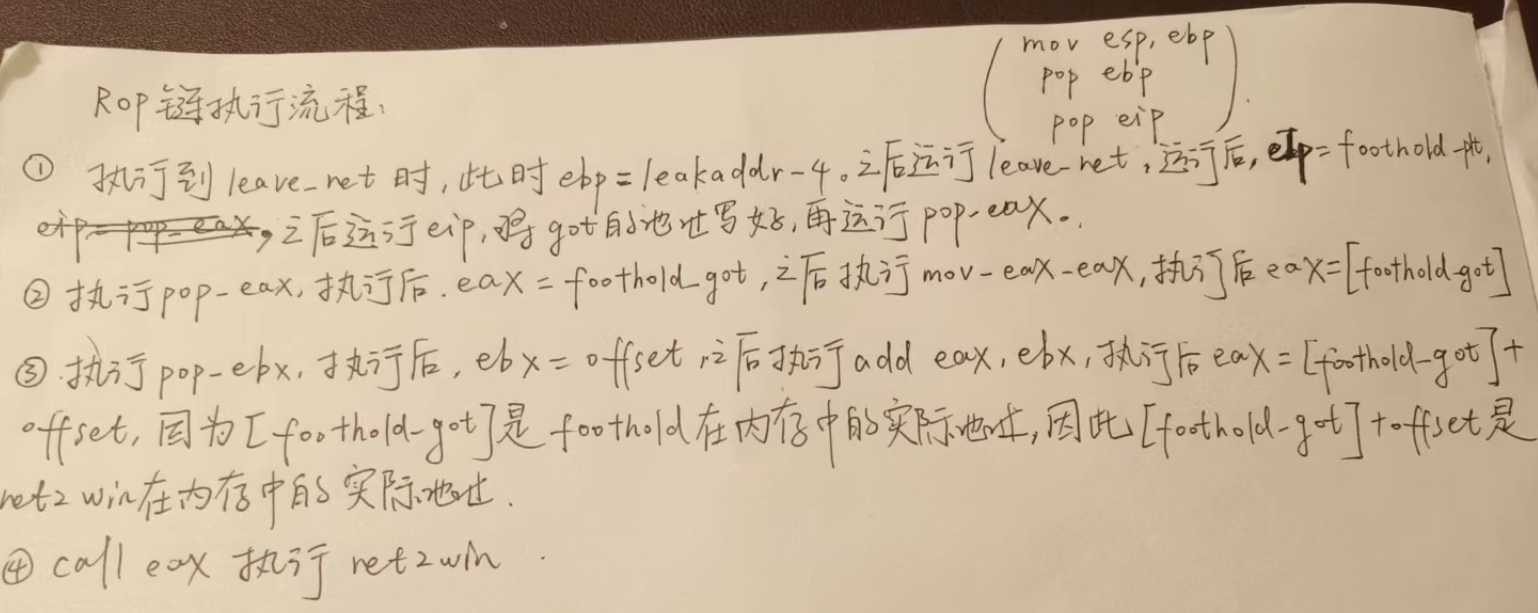 mov esp, ebp
pop ebp
pop eip
Rop链执行流程:
① 执行到leave_ret时,此时ebp=leakaddr-4。之后运行leave_ret,运行后,eIp=foothold-plt,
eip=pop-eax,之后运行eip,将got的地址写好,再运行pop-eax。
② 执行pop-eax,执行后.eax=foothold_got,之后执行mov-eax-eax,执行后eax=[foothold-got]
③ 执行pop-ebx,执行后,ebx=offset,之后执行add eax,ebx,执行后eax=[foothold-got]+
offset,因为[foothold-got]是foothold在内存中的实际地址,因此[foothold-got]+offset是
ret2win在内存中的实际地址.
④ call eax 执行ret2win.